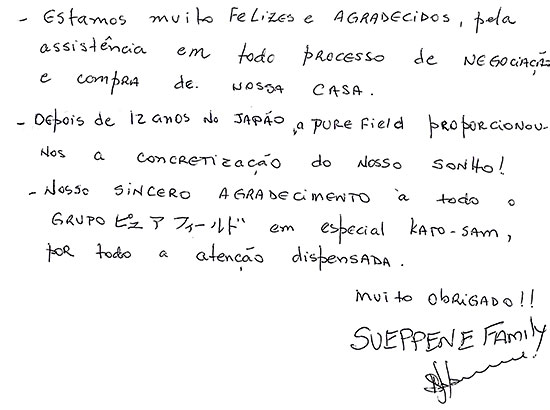 - Estamos muito FELIZES e AGRADECIDOS, pela
assistência em todo PROCESSO de NEGOCIAÇÃO
e COMPRA de NOSSA CASA.
- DEPOIS de 12 ANOS NO JAPÃO, a PURE Field PROPORCIONOU-
NOS a CONCRETIZAÇÃO do NOSSO SONHO!
- NOSSO SINCERO AGRADECIMENTO à todo o
GRUPO ピュア フィールド em especial KATO-SAM,
por todo a atenção dispensADA.
muito obRIGADO!!
SUEPPENE FAMily